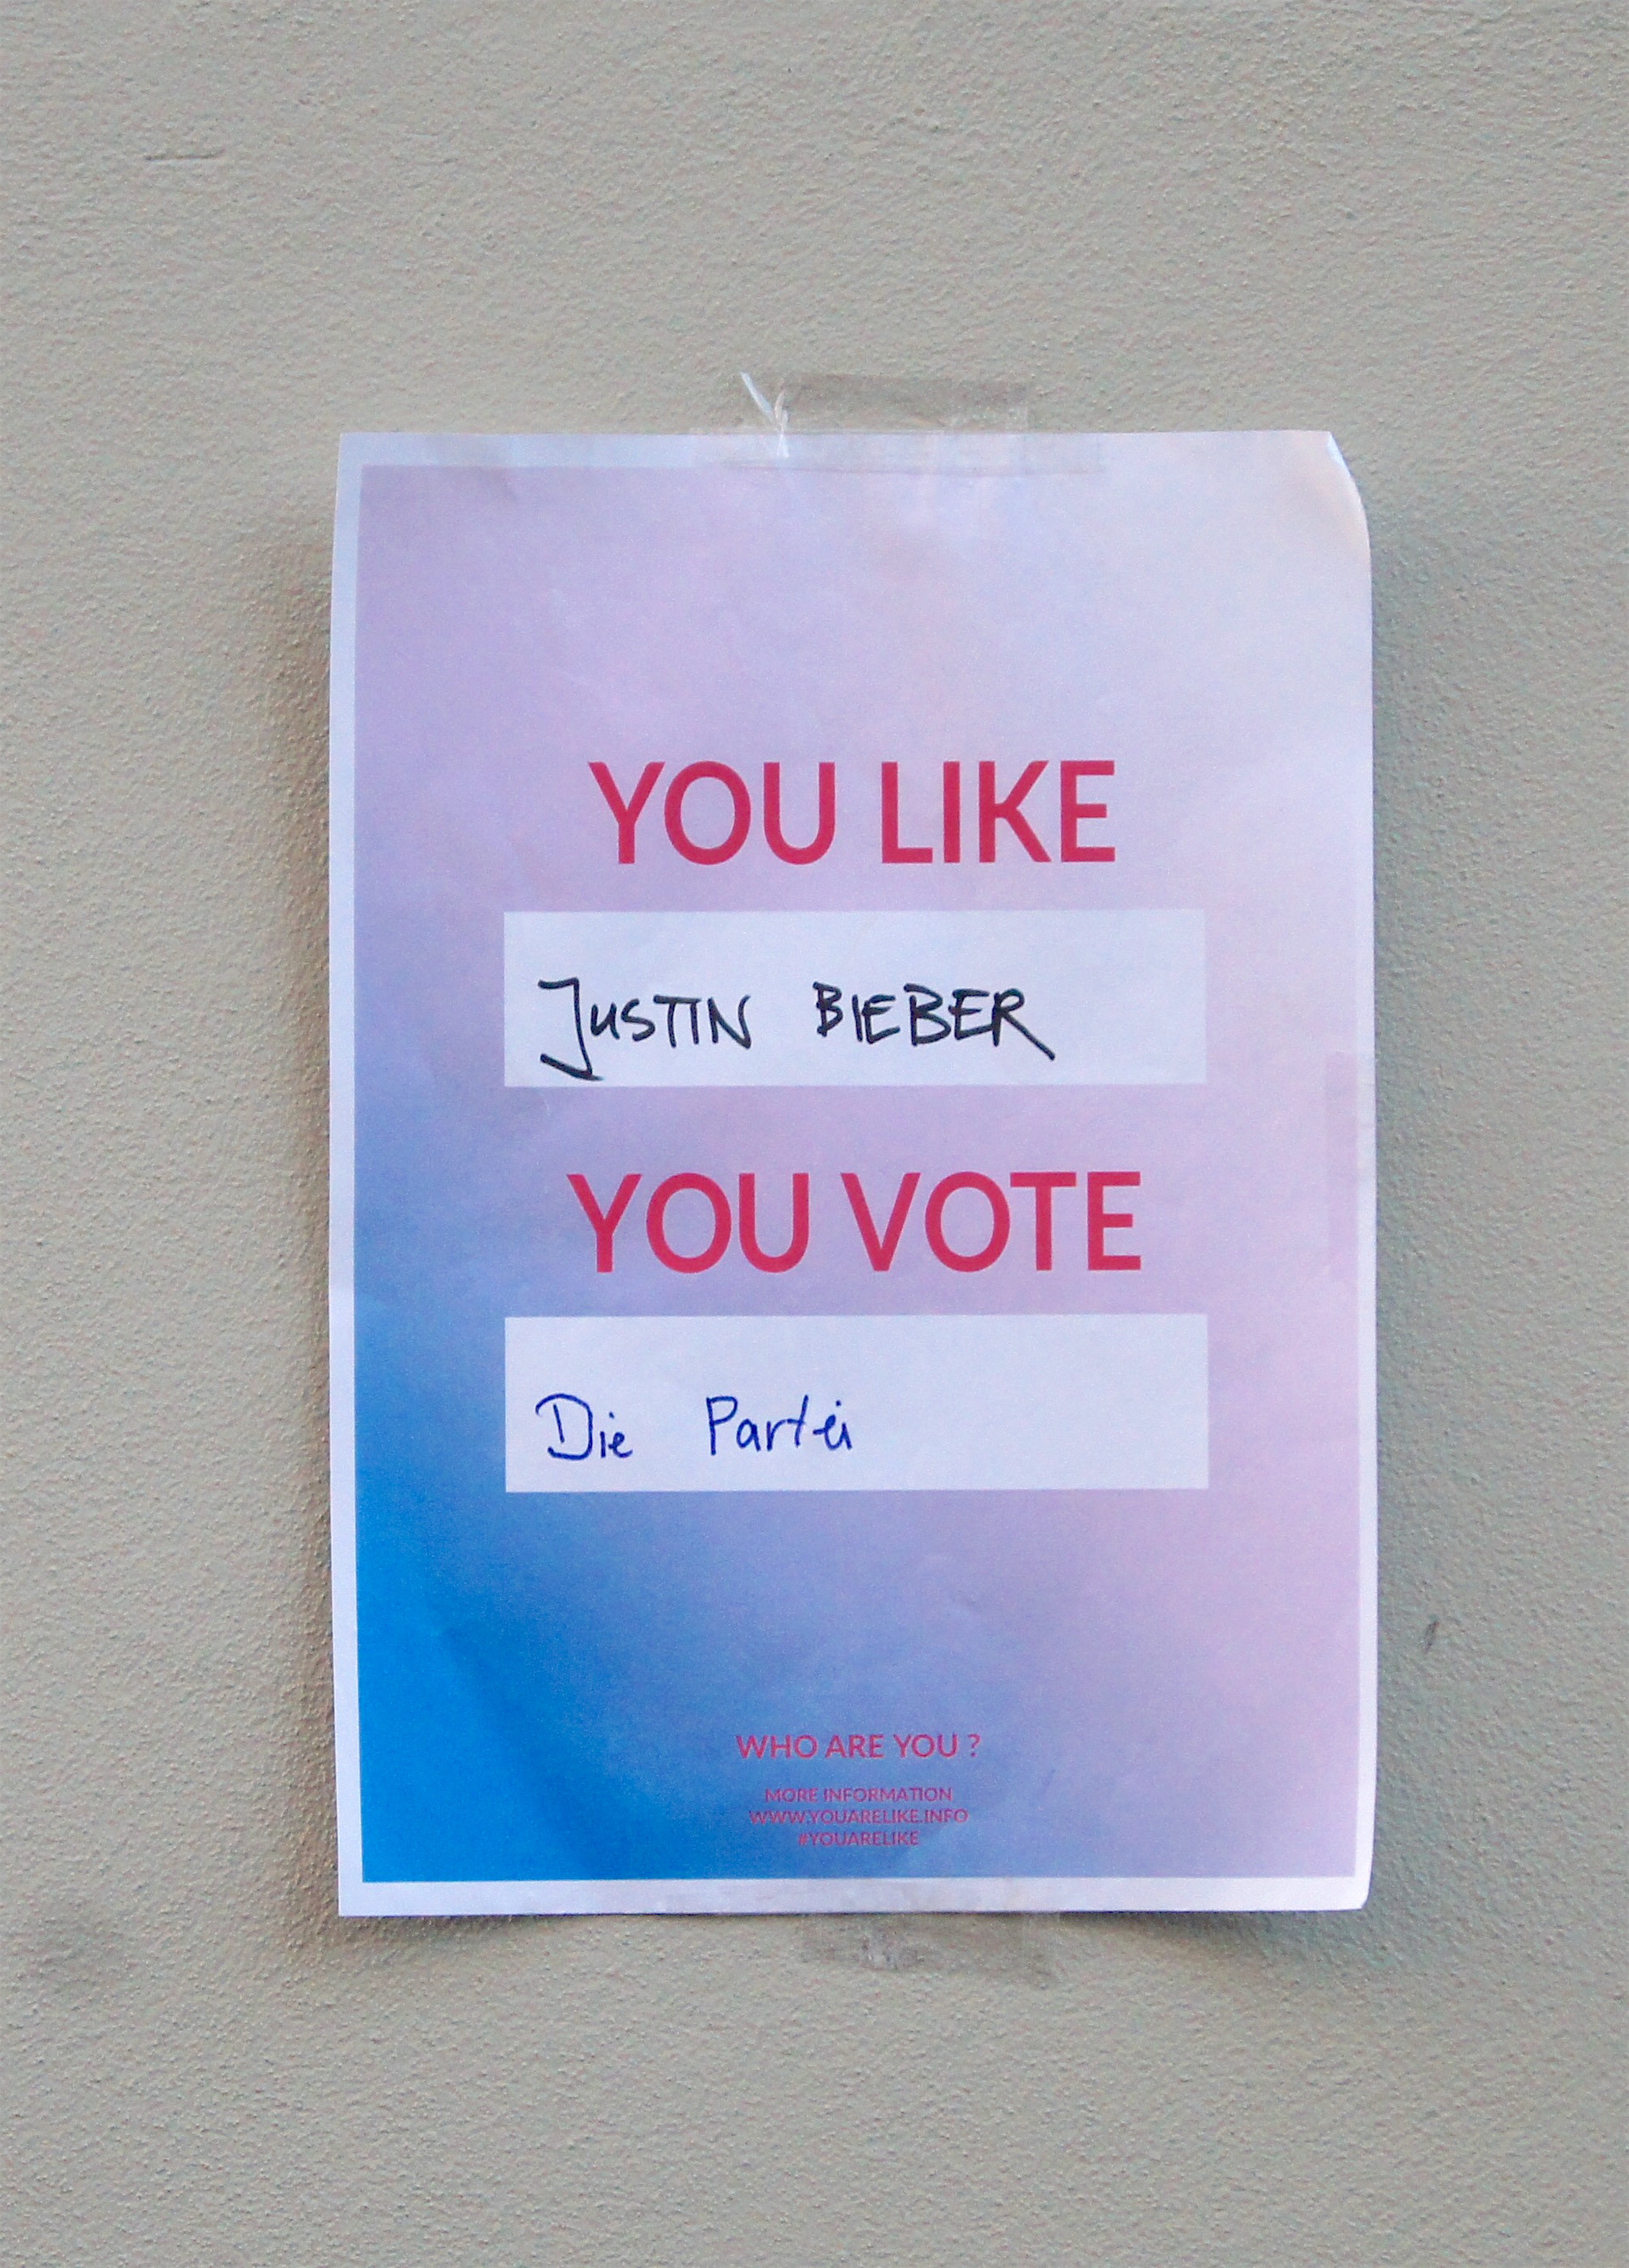 YOU LIKE
JUSTIN BIEBER
YOU VOTE
Die Partei
WHO ARE YOU ?
MORE INFORMATION
WWW.YOUARELIKE.INFO
#YOUARELIKE